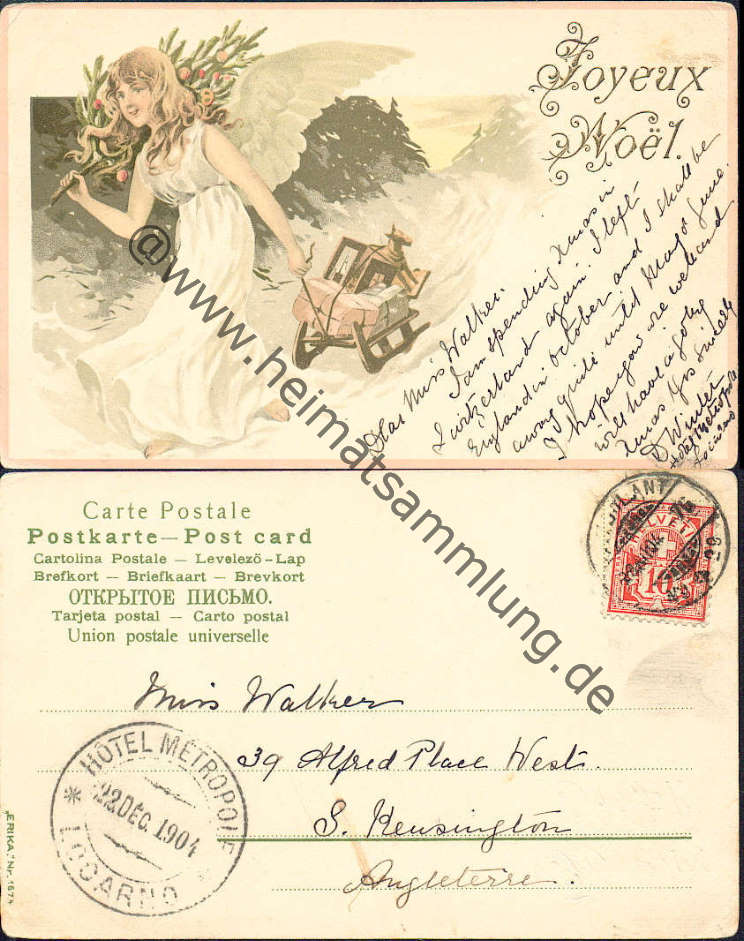 Joyeux
Noël.
Dear Miss Walker.
I am spending Xmas in
Switzerland again. I left
England in October and I shall be
away quite until May or June.
I hope you are well and
will have a jolly
Xmas Yrs sincerely
D Winter
Hotel Metropole
Locarno
@www.heimatsammlung.de
Carte Postale
Postkarte – Post card
Cartolina Postale – Levelező-Lap
Brefkort – Briefkaart – Brevkort
ОТКРЫТОЕ ПИСЬМО.
Tarjeta postal – Carto postal
Union postale universelle
HELVETIA
10
AMBULANT
Miss Walker
39 Alfred Place West.
S. Kensington
Angleterre.
HÔTEL MÉTROPOLE
22 DÉC. 1904
LOCARNO
„ERIKA" Nr. 1674